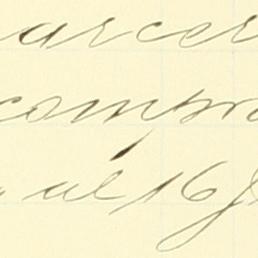 arcer
compro
al 16 J